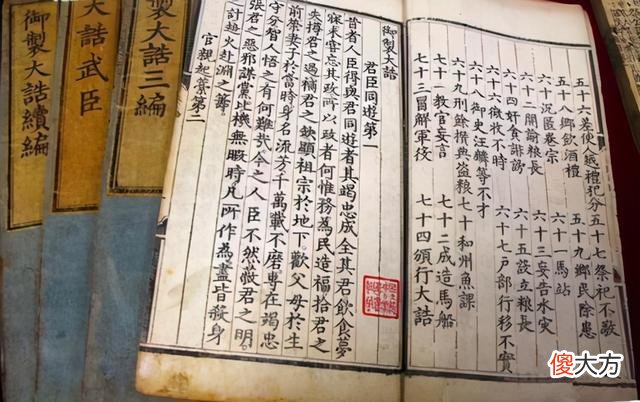 五十六差使人越禮犯分 五十七祭祀不敬
五十八鄉飲酒禮 五十九鄉民除患
六十沉匿卷宗 六十一馬站
六十二閒諭粮長 六十三妄告水災
六十四奸貪誹謗 六十五設立粮長
六十六徵收不時 六十七戶部行移不實
六十八御史汪麟等不才
六十九刑餘攢典盜粮 七十和州魚課
七十一教官妄言 七十二成造馬船
七十三冒解軍役 七十四頒行大誥
御製大誥
君臣同遊第一
昔者人臣得與君同遊者其竭忠成全其君飲食夢
寐未嘗忘其政所以政者何惟務為民造福拾君之
失撙君之過補君之缺顯祖宗於地下歡父母於生
前榮妻子於當時身名流芳千萬載不磨專在竭忠
守分智人悟之有何難哉今之人臣不然蔽君之明
張君之惡邪謀黨比機無暇時凡所作為盡皆殺身
之計趨火赴淵之筭
官親起藁第二
製大誥三編
大誥武臣
御製大誥續編
傻大方